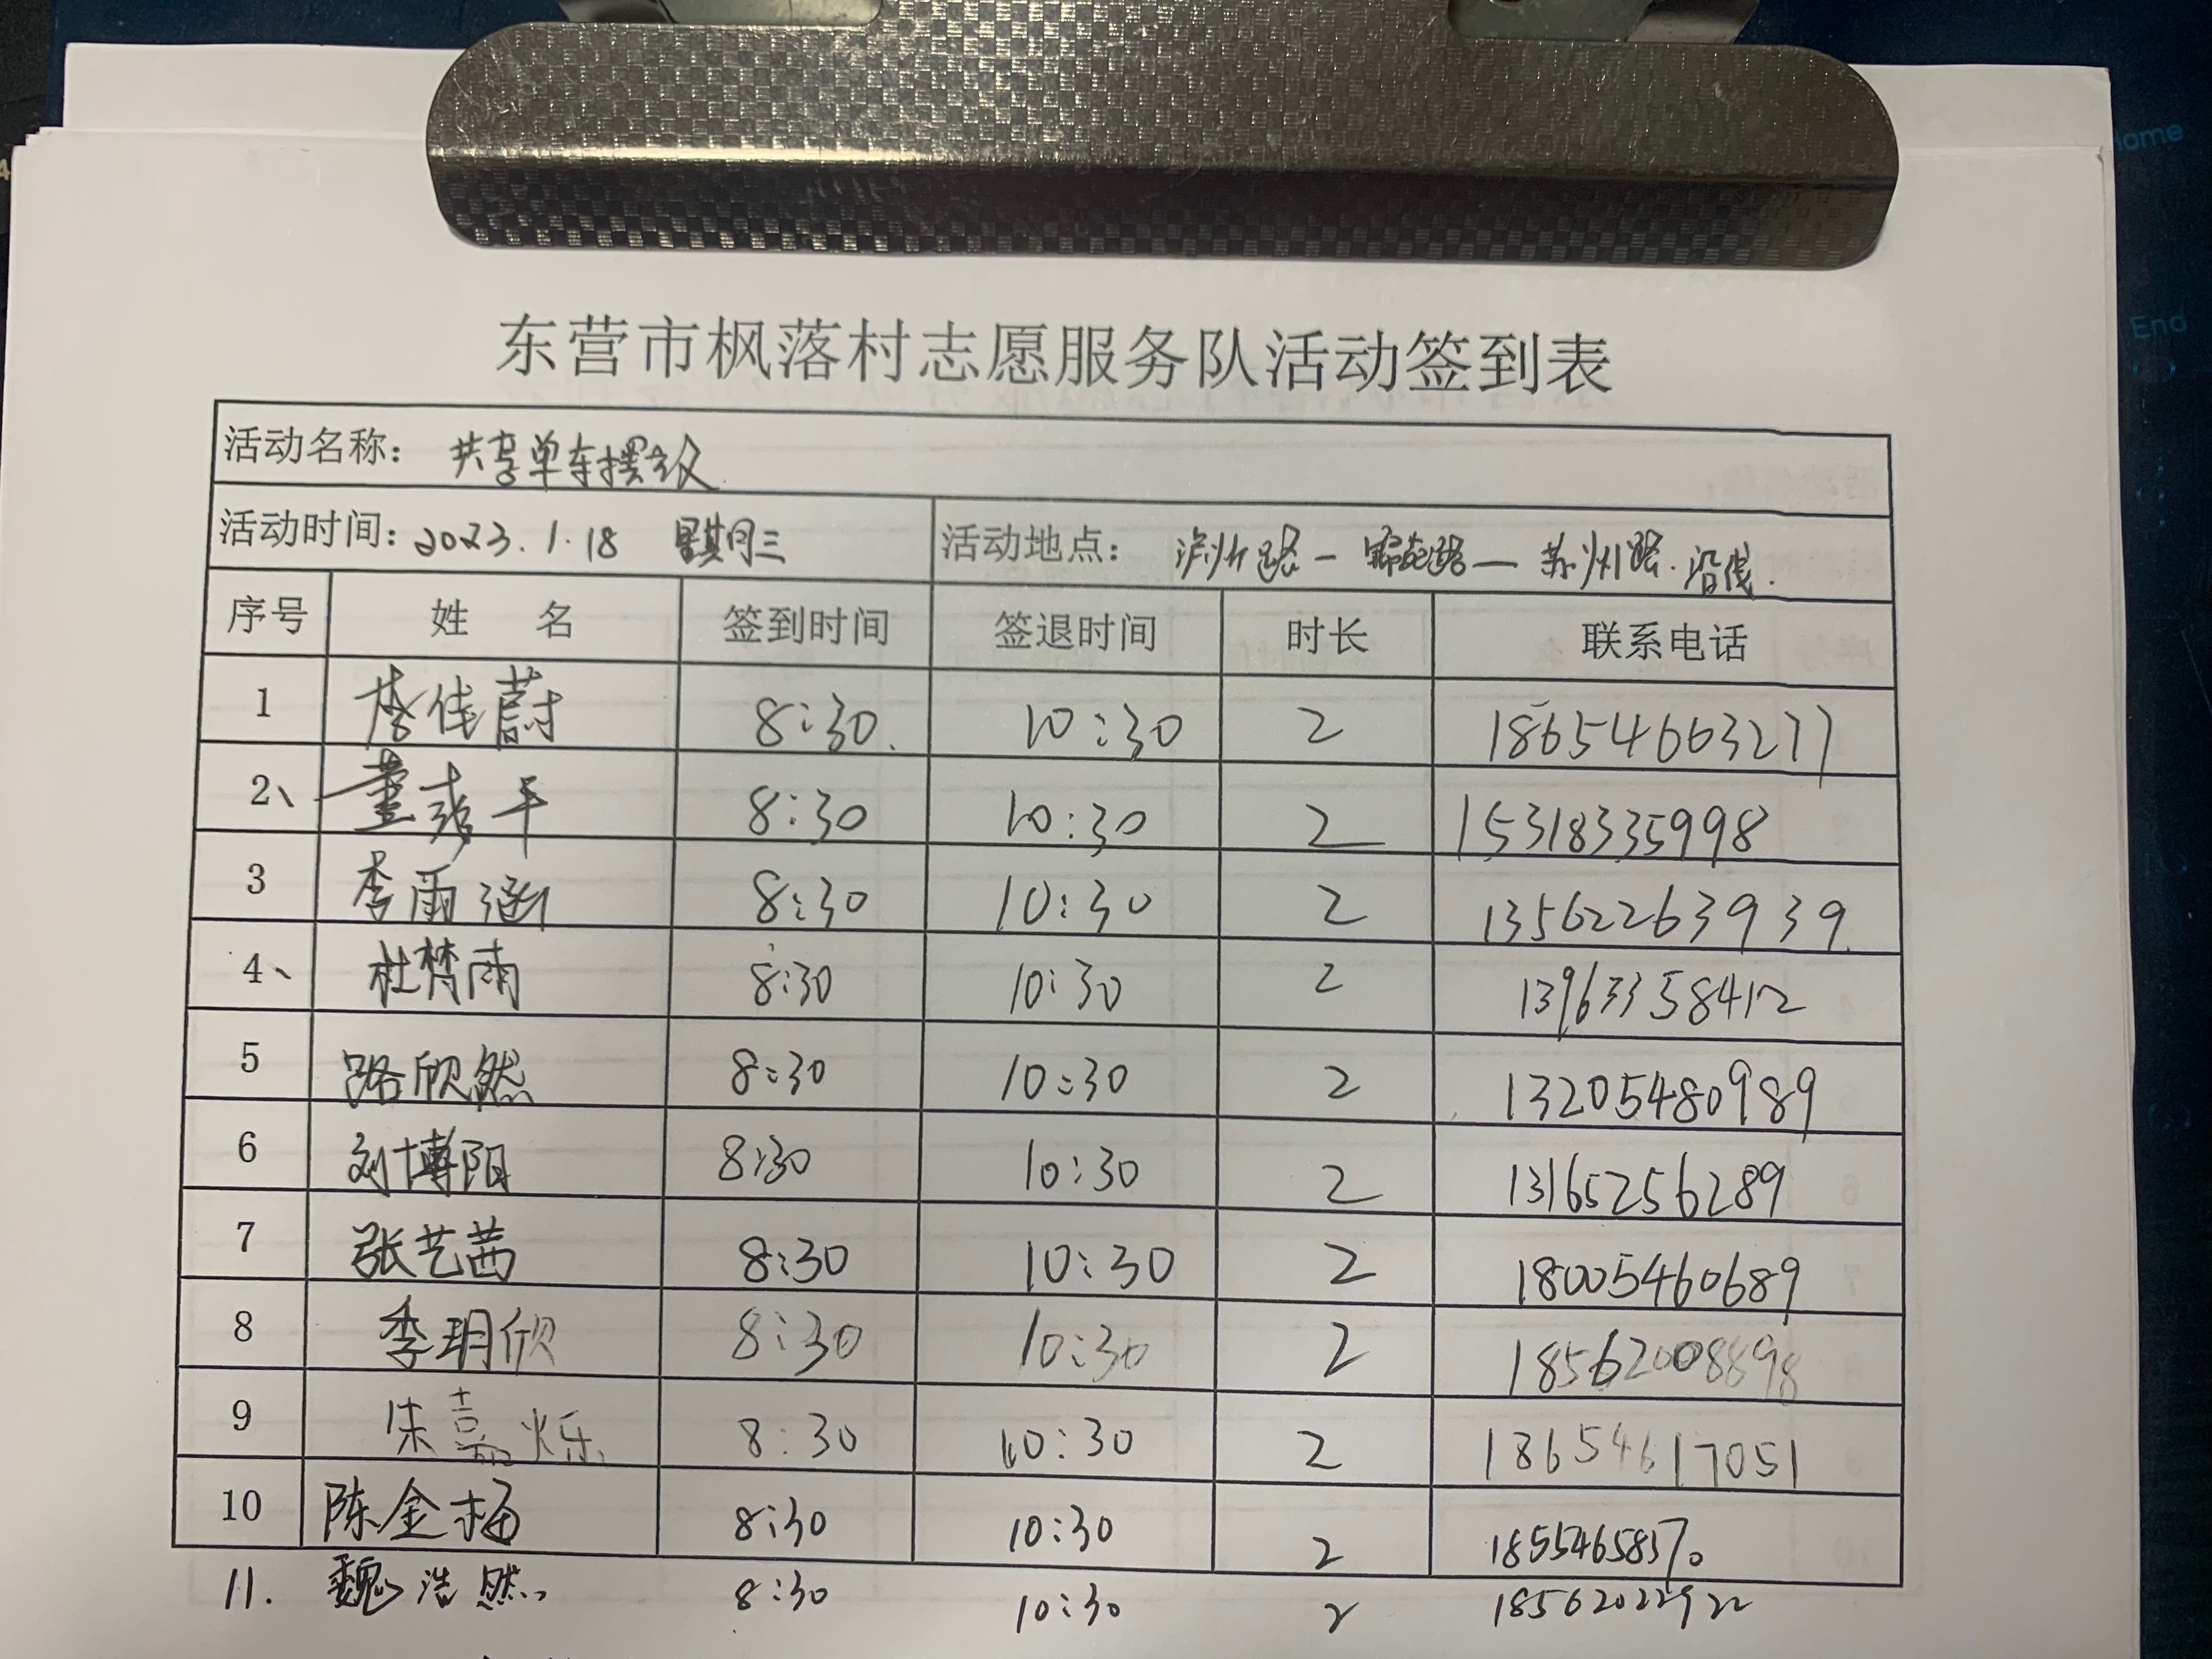 东营市枫落村志愿服务队活动签到表
活动名称: 共享单车摆放
活动时间: 2023.1.18 星期三 活动地点: 泸州路— —苏州路.沿线.
序号 姓 名 签到时间 签退时间 时长 联系电话
1 李佳蔚 8:30. 10:30 2 18654663277
2、 董 平 8:30 10:30 2 15318335998
3 李雨涵 8:30 10:30 2 13562263939.
4、 杜梦雨 8:30 10:30 2 13963358412
5 路欣然 8:30 10:30 2 13205480989
6 刘博阳 8:30 10:30 2 13165256289
7 张艺茜 8:30 10:30 2 18005460689
8 季玥欣 8:30 10:30 2 18562008898
9 朱嘉烁 8:30 10:30 2 18654617051
10 陈金梅 8:30 10:30 2 18554658570
11. 魏浩然 8:30 10:30 2 18562022922
Home
End